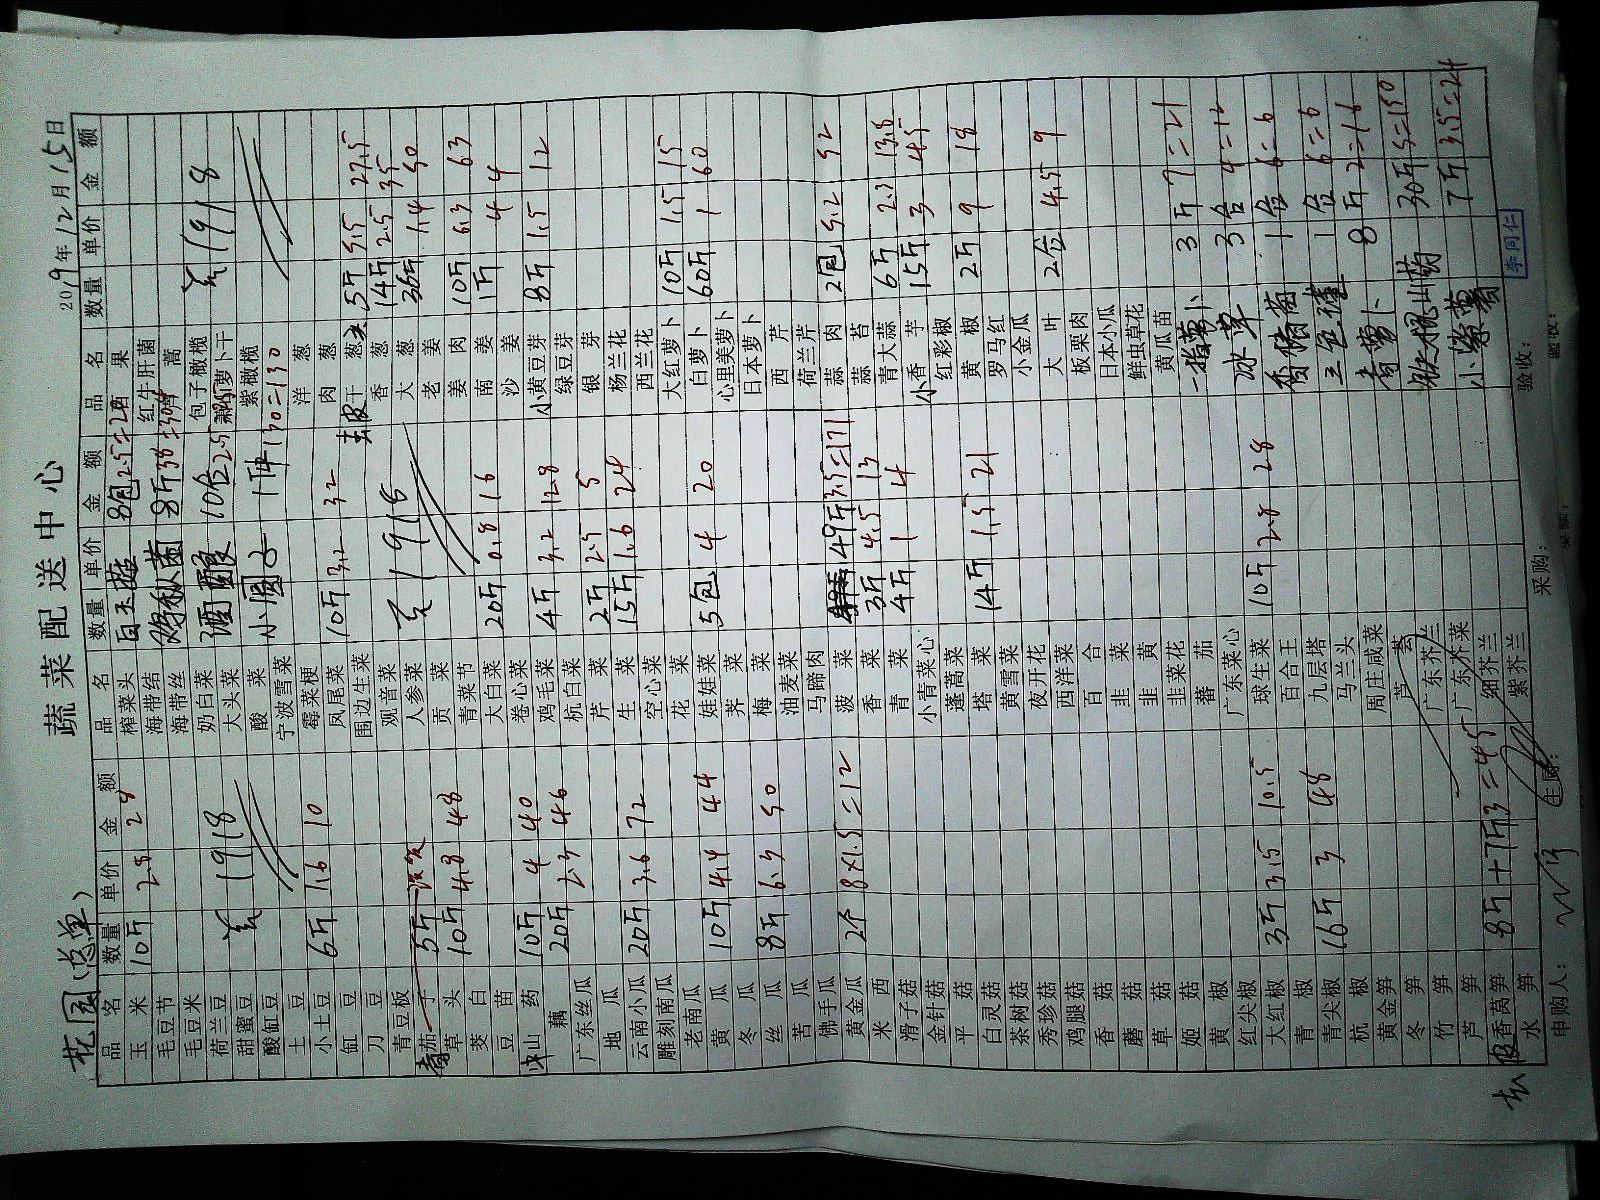 蔬菜配送中心
花园(总单)
2019年12月15日
品名 数量 单价 金额 品名 数量 单价 金额 品名 数量 单价 金额
玉米 10斤 2.8 28 榨菜头
毛豆节 海带结 红牛肝菌
毛豆米 海带丝
荷兰豆 奶白菜 包子橄榄
甜蜜豆 大头菜
酸缸豆 酸菜 紫橄榄
土豆 宁波雪菜 洋葱
小土豆 6斤 1.6 10 霉菜梗 肉葱
缸豆 凤尾菜 10斤 3.2 32 干葱头 5斤 5.5 27.5
刀豆 围边生菜 香葱 14斤 2.5 35
青豆板 观音菜 大葱 36斤 1.4 50
番茄 5斤 人参菜 老姜
草头 10斤 4.8 48 贡菜 姜肉 10斤 6.3 63
茭白 青菜节 南姜 1斤 4 4
豆苗 大白菜 20斤 0.8 16 沙姜
山药 10斤 4 40 卷心菜 小黄豆芽 8斤 1.5 12
藕 20斤 2.3 46 鸡毛菜 4斤 3.2 12.8 绿豆芽
广东丝瓜 杭白菜 银芽
地瓜 芹菜 2斤 2.5 5 杨兰花
云南小瓜 20斤 3.6 72 生菜 15斤 1.6 24 西兰花
雕刻南瓜 空心菜 大红萝卜 10斤 1.5 15
老南瓜 花菜 白萝卜 60斤 1 60
黄瓜 10斤 4.4 44 娃娃菜 5包 4 20 心里美萝卜
冬瓜 荠菜 日本萝卜
丝瓜 8斤 6.3 50 梅菜 西芹
苦瓜 油麦菜 荷兰芹
佛手瓜 马蹄肉 蒜肉 2包 5.2 52
黄金瓜 2个 8×1.5=12 菠菜 49斤 3.5=171 蒜苔
米西 香菜 3斤 4.5 13 青大蒜 6斤 2.3 13.8
滑子菇 青菜 4斤 1 4 小香芋 15斤 3 45
金针菇 小青菜心 红彩椒
平菇 蓬蒿菜 黄椒 2斤 9 18
白灵菇 塔菜 14斤 1.5 21 罗马红
茶树菇 黄雪菜 小金瓜
秀珍菇 夜开花 大叶 2合 4.5 9
鸡腿菇 西洋菜 板栗肉
香菇 百合 日本小瓜
蘑菇 韭菜 鲜虫草花
草菇 韭黄 黄瓜苗
姬菇 韭菜花 一指萝卜 3斤 7=21
黄椒 蕃茄
红尖椒 广东菜心 冰草 3合 4=12
大红椒 3斤 3.5 10.5 球生菜 10斤 2.8 28 1合 6=6
青椒 百合王
青尖椒 16斤 3 48 九层塔 1合 6=6
杭椒 马兰头 青萝卜 8斤 2=16
黄金笋 周庄咸菜
冬笋 芦荟 铁棍山药 30斤 5=150
竹笋 广东芥兰
芦笋 广东芥菜 小紫薯 7斤 3.5=24
去皮香莴笋 8斤+7斤 3=45 细芥兰
水笋 紫芥兰
李同仁
申购人: 主厨: 采购: 验收: